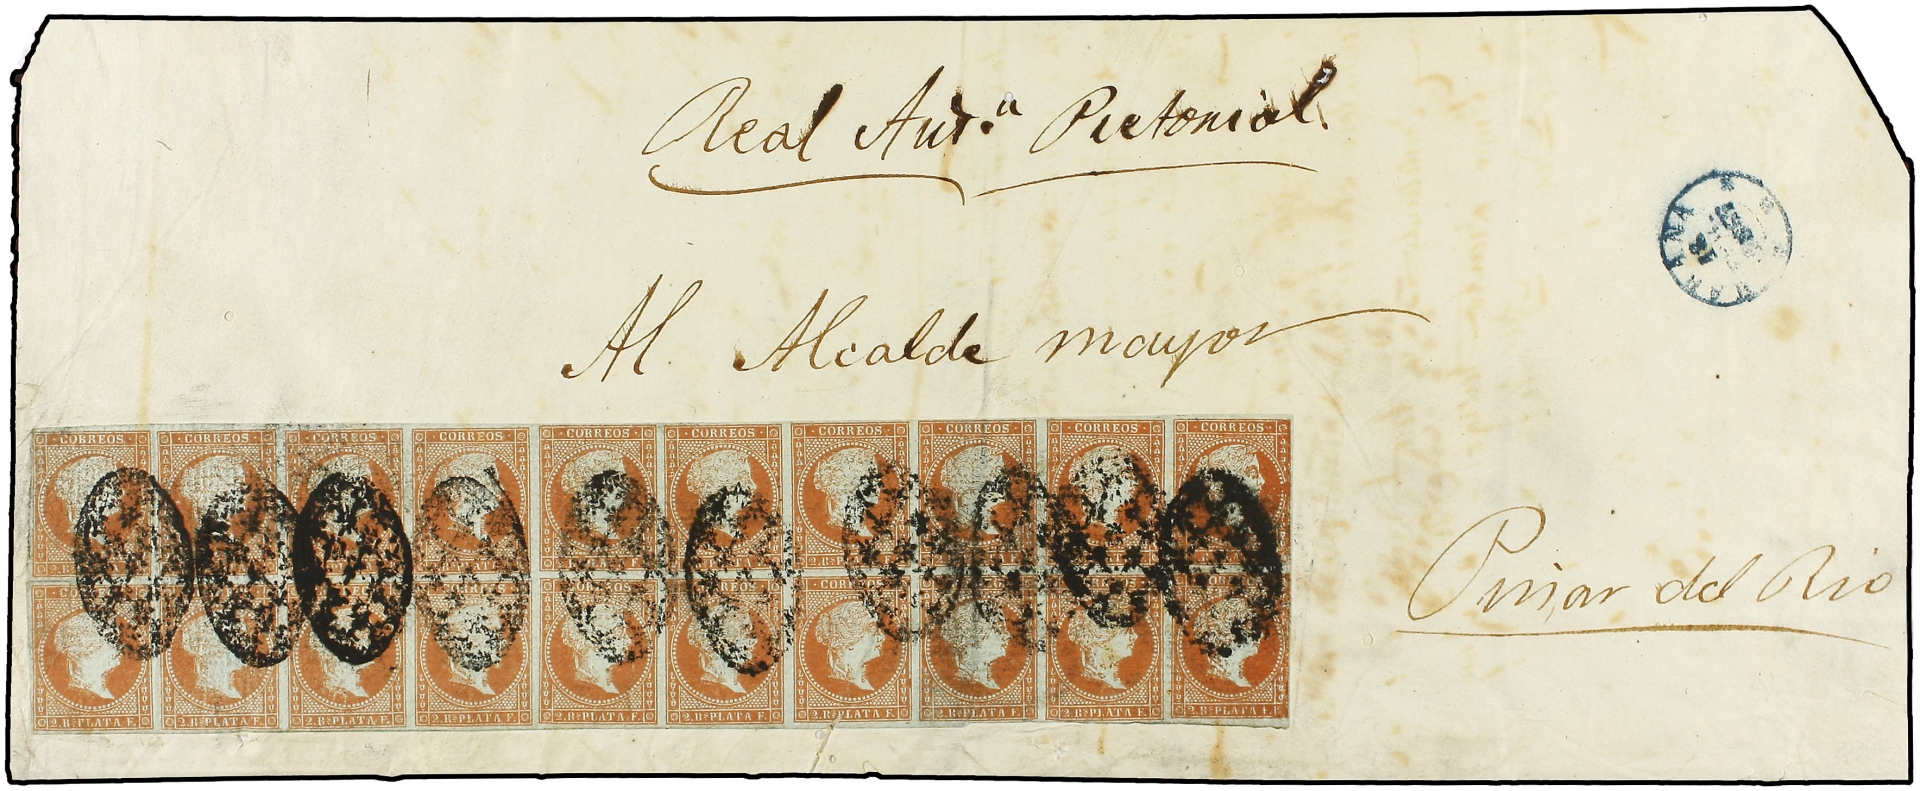 Real Aud.a Pretorial.
Al Alcalde mayor
Pinar del Rio
CORREOS CORREOS CORREOS CORREOS CORREOS CORREOS CORREOS CORREOS CORREOS CORREOS
2. Rs PLATA F. 2. Rs PLATA F. 2. Rs PLATA F. 2. Rs PLATA F. 2. Rs PLATA F. 2. Rs PLATA F. 2. Rs PLATA F. 2. Rs PLATA F. 2. Rs PLATA F. 2. Rs PLATA F.